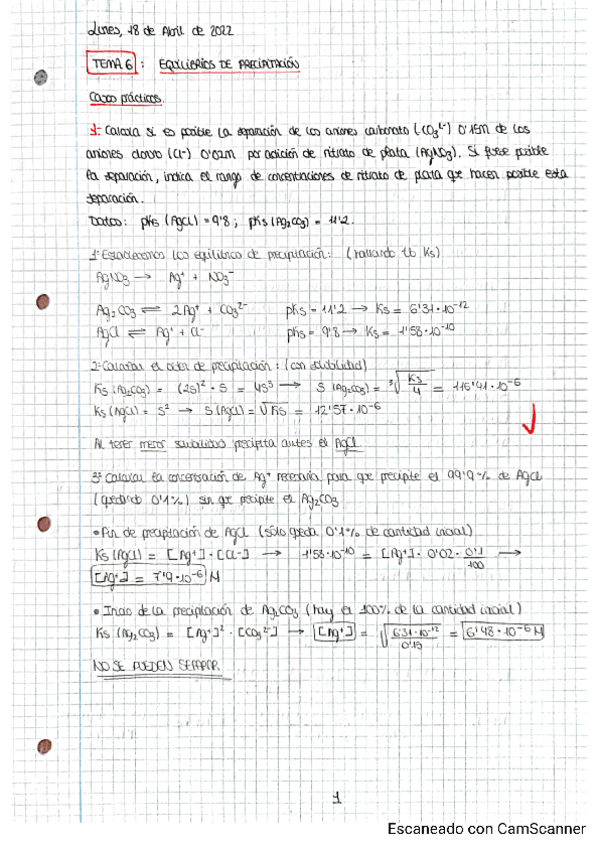 Lunes, 18 de Abril de 2022
TEMA 6 : EQUILIBRIOS DE PRECIPITACIÓN
Casos prácticos.
1- Calcula si es posible la separación de los aniones carbonato (CO₃²⁻) 0'15M de los
aniones cloruro (Cl⁻) 0'02M por adición de nitrato de plata (AgNO₃). Si fuese posible
la separación, indica el rango de concentraciones de nitrato de plata que hacen posible esta
separación.
Datos: pKs (AgCl) = 9'8 ; pKs (Ag₂CO₃) = 11'2.
1º Establecemos los equilibrios de precipitación: (hallando la Ks)
AgNO₃ → Ag⁺ + NO₃⁻
Ag₂CO₃ ⇌ 2Ag⁺ + CO₃²⁻ pKs = 11'2 → Ks = 6'31·10⁻¹²
AgCl ⇌ Ag⁺ + Cl⁻ pKs = 9'8 → Ks = 1'58·10⁻¹⁰
2º Calcular el orden de precipitación: (con solubilidad)
Ks (Ag₂CO₃) = (2s)² · s = 4s³ → S (Ag₂CO₃) = ³√(Ks/4) = 116'41·10⁻⁶
Ks (AgCl) = s² → S (AgCl) = √Ks = 12'57·10⁻⁶
Al tener menos solubilidad precipita antes el AgCl
3º Calcular la concentración de Ag⁺ necesaria para que precipite el 99'9% de AgCl
(quedando 0'1%) sin que precipite el Ag₂CO₃
• Fin de precipitación de AgCl (sólo queda 0'1% de cantidad inicial)
Ks (AgCl) = [Ag⁺] · [Cl⁻] → 1'58·10⁻¹⁰ = [Ag⁺] · 0'02 · 0'1/100 →
[Ag⁺] = 7'9·10⁻⁶ M
• Inicio de la precipitación de Ag₂CO₃ (hay el 100% de la cantidad inicial)
Ks (Ag₂CO₃) = [Ag⁺]² · [CO₃²⁻] → [Ag⁺] = √(6'31·10⁻¹²/0'15) = 6'48·10⁻⁶ M
NO SE PUEDEN SEPARAR.
1
Escaneado con CamScanner